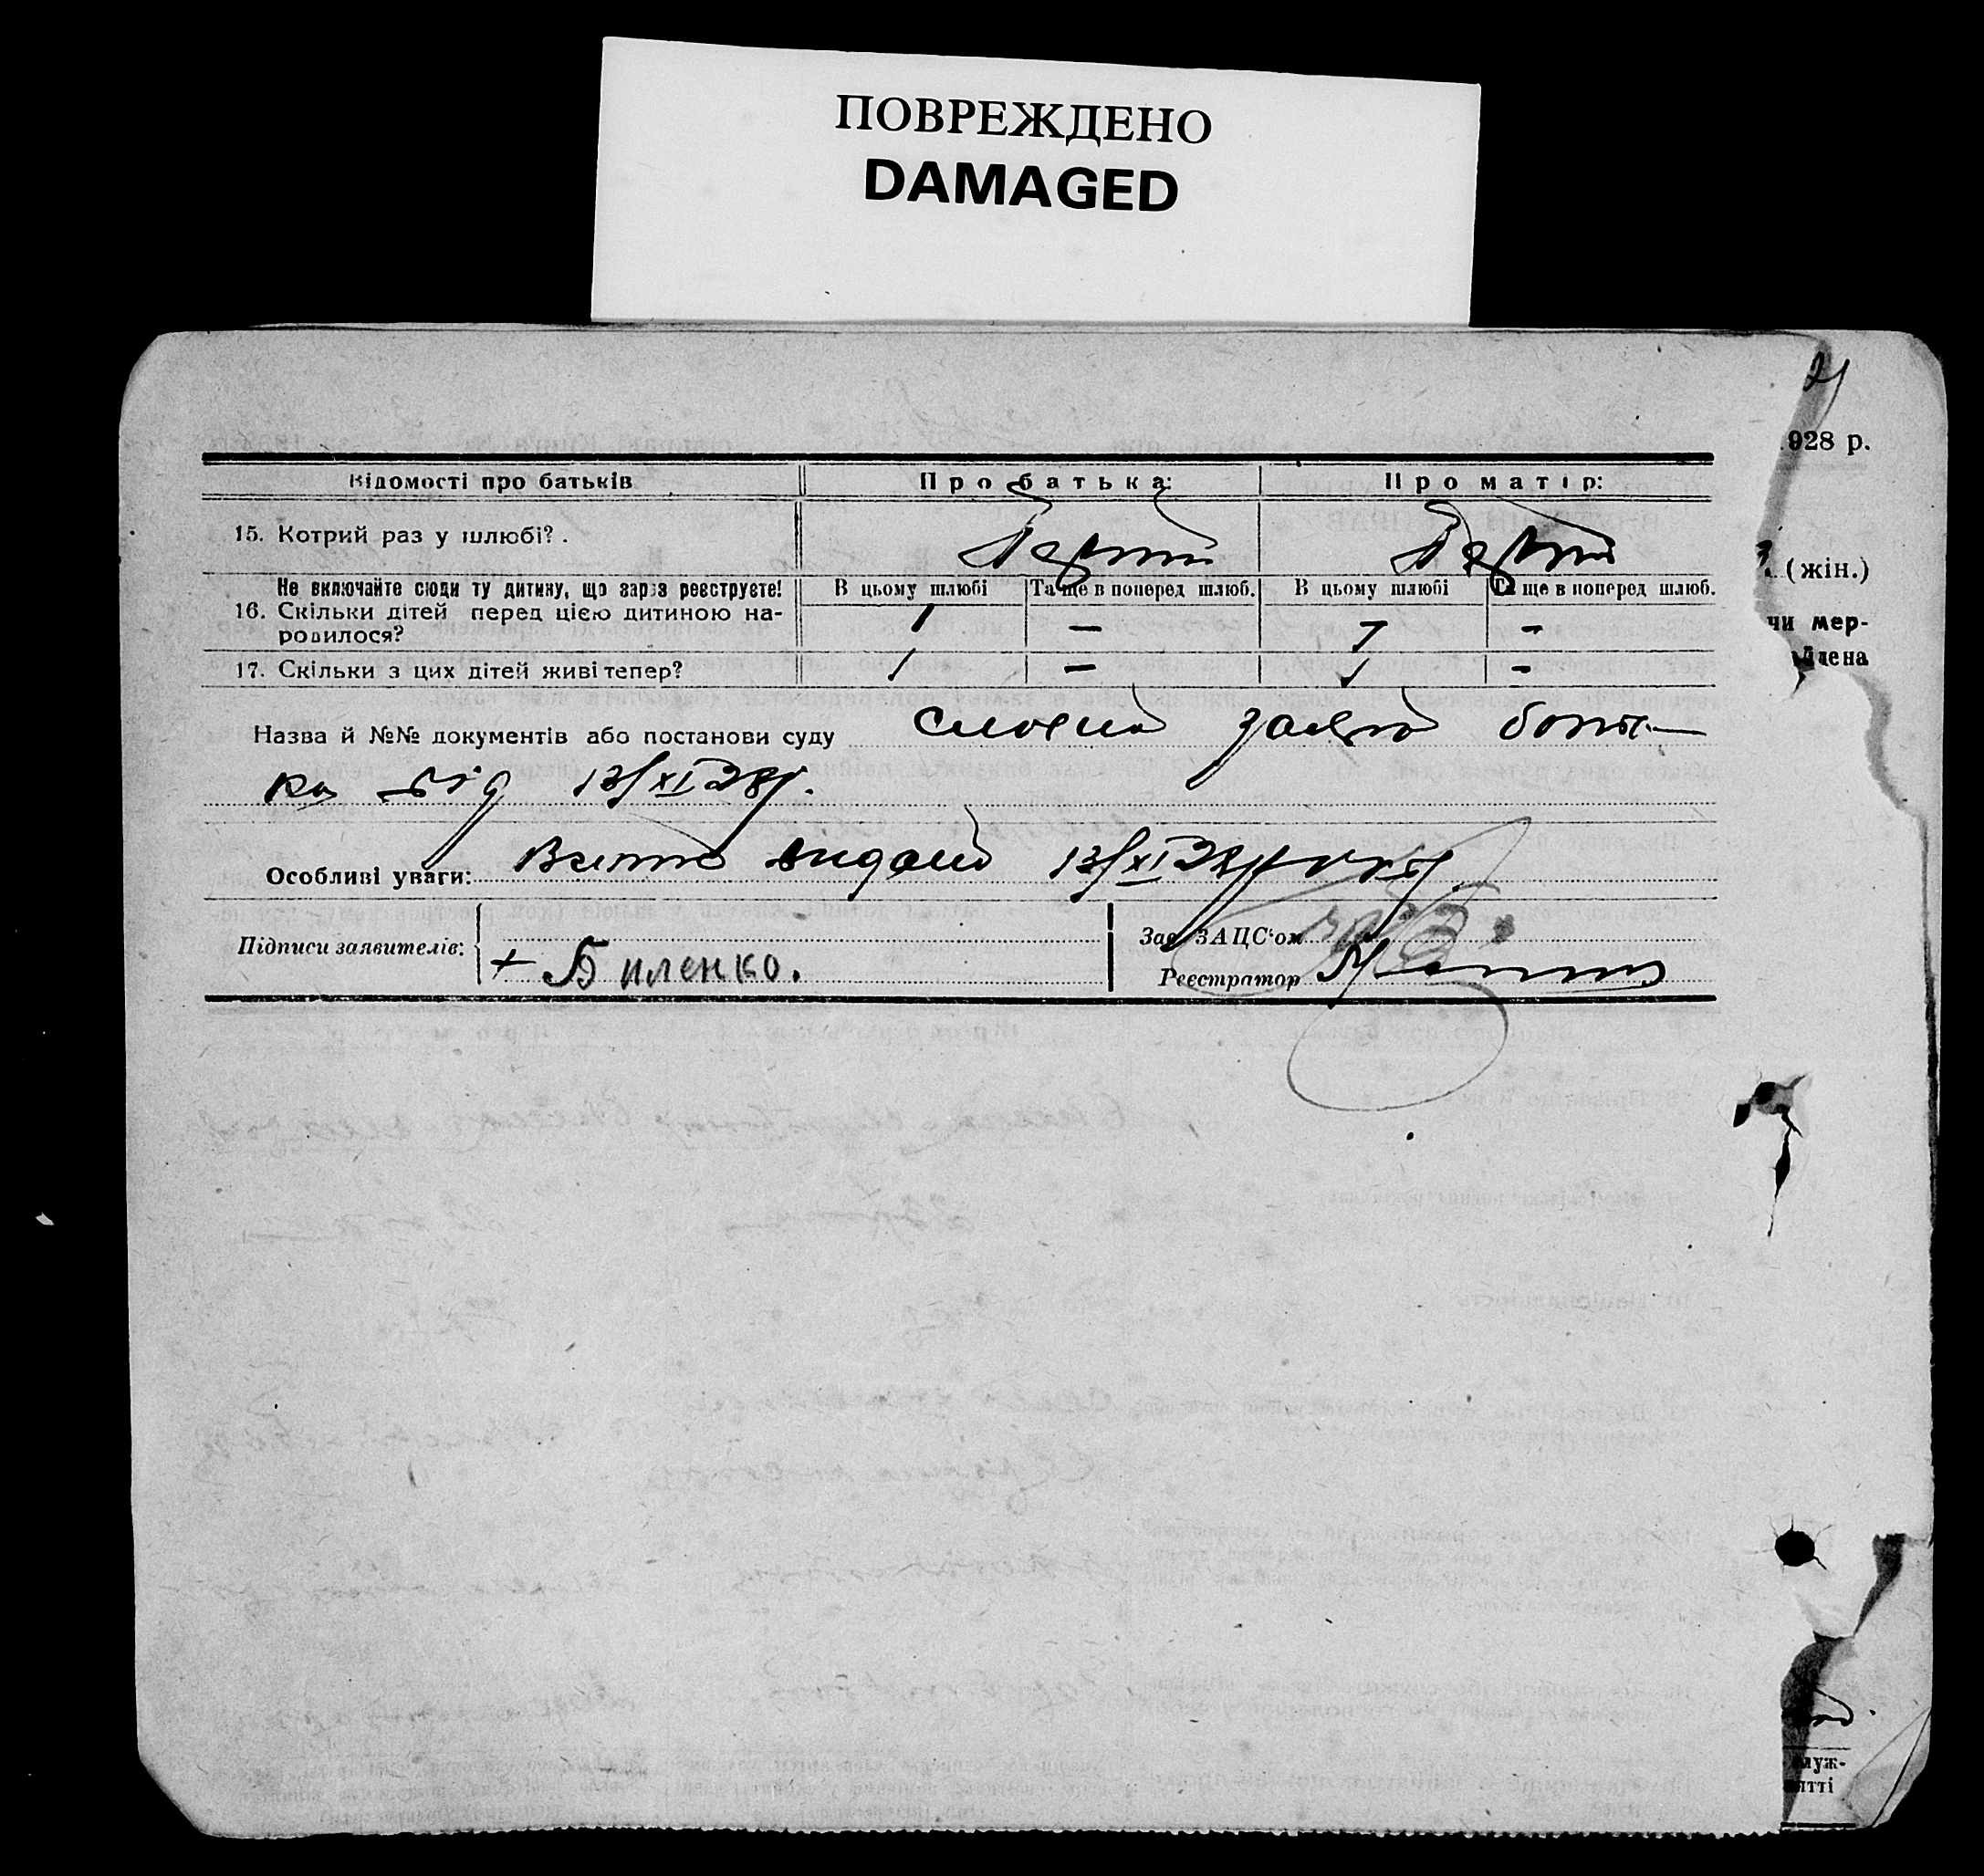 ПОВРЕЖДЕНО
DAMAGED
21
928 р.
Відомості про батьків Про батька: Про матір:
15. Котрий раз у шлюбі? . Перший Перший
(жін.)
Не включайте сюди ту дитину, що зараз реєструєте! В цьому шлюбі Та ще в поперед шлюб. В цьому шлюбі Та ще в поперед шлюб.
16. Скільки дітей перед цією дитиною на-
родилося? 1 — 1 —
чи мер-
17. Скільки з цих дітей живі тепер? 1 — 1 —
Назва й №№ документів або постанови суду словна заява бать-
ка від 13/XI 28р.
Особливі уваги: Витяг видано 13/XI 28р
Підписи заявителів: + Биленко.
Зав. ЗАЦС'ом
Реєстратор
луж-
ятті